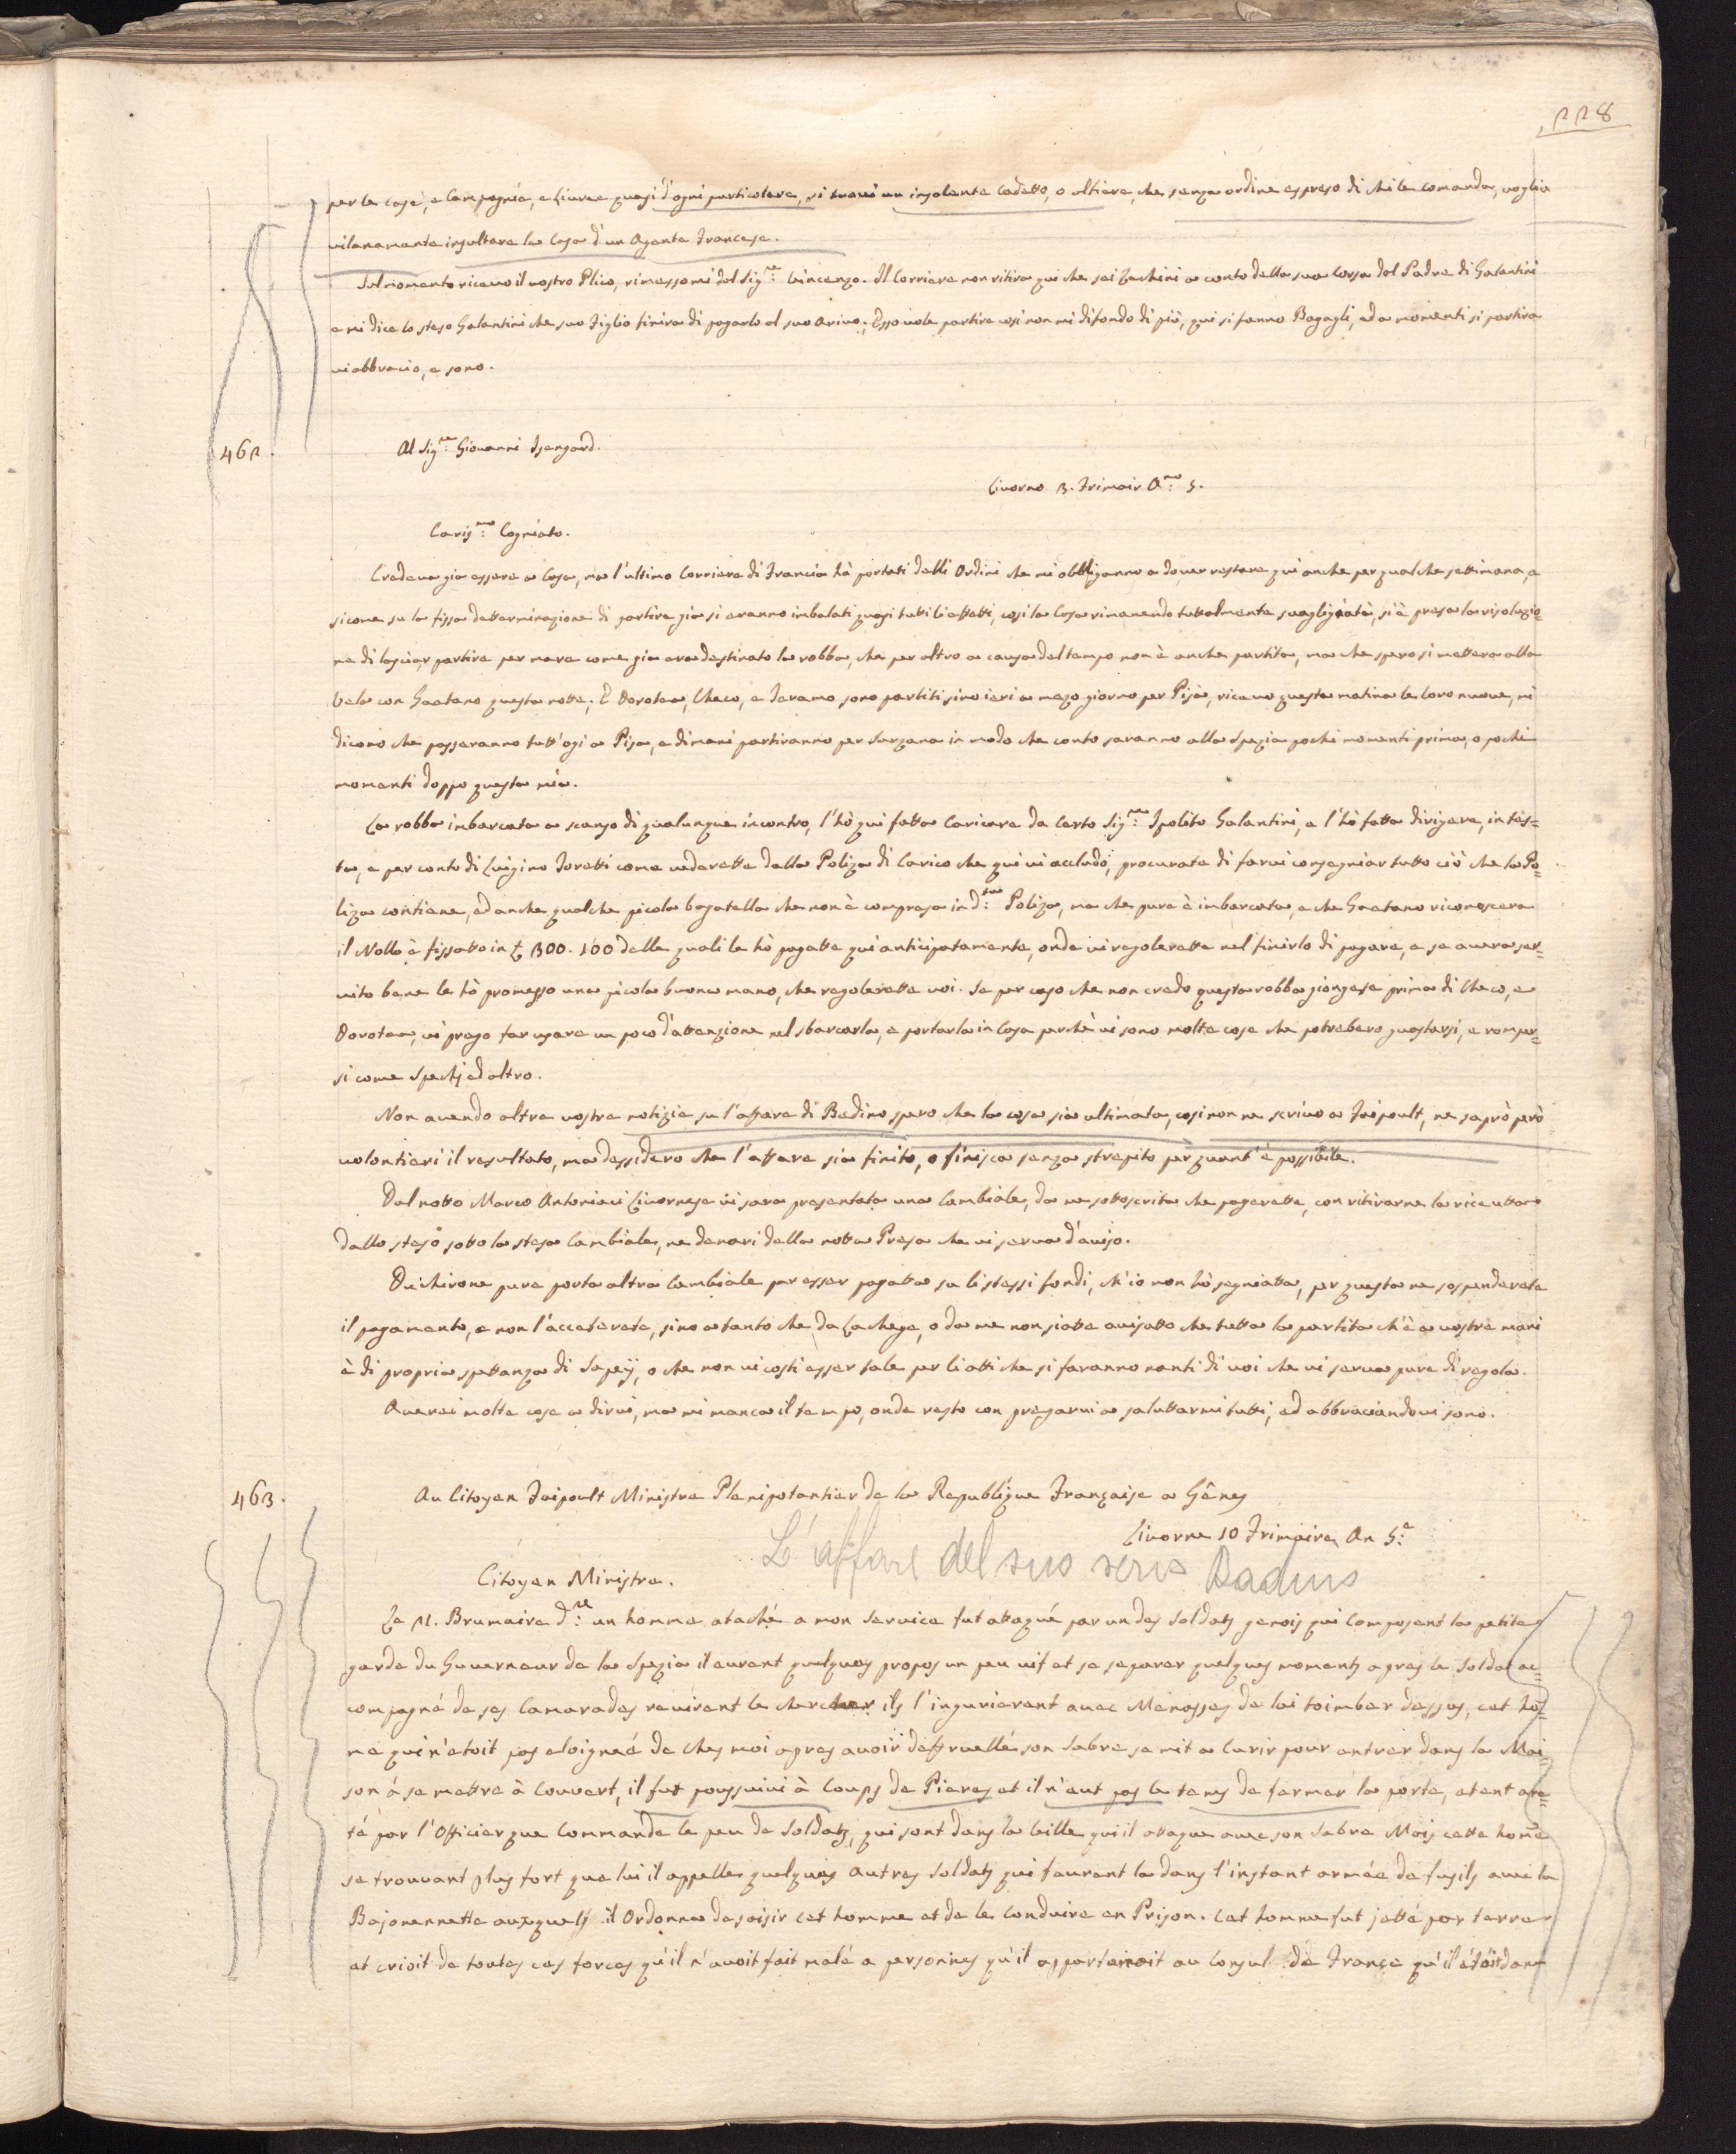 228
per le case, e Campagnie, e Livree quasi d'ogni particolare, si trovi un insolente Cadetto, o ultiere, che senza ordine espreso di chi le comanda, voglia
vilanamente insultare la Casa d'un Agente Francese.
Sul momento ricevo il vostro Plico, rimessomi dal Sig.re Vincenzo. Il Corriere non ritira qui che sei Zechini a conto della sua Corsa dal Padre di Galantini
e mi dice lo steso Galantini che suo Figlio finira di pagarlo al suo arivo; Esso vole partire cosi non mi difondo di più, qui si fanno Bagagli, ed a momenti si partira
vi abbracio, e sono.
462.
Al Sig.re Giovanni Isengard.
Livorno 3. Frimair A.no 5.
Caris.mo Cogniato.
Credeva gia essere a Casa, ma l'ultimo Corriere di Francia hà portati delli Ordini che mi obbliganno a dover restare qui anche per qualche settimana, e
sicome su la fissa determinazione di partire gia si eranno imbalati quasi tutti li effetti, cosi la Casa rimanendo tuttalmente svagligiata, si è presa la risoluzio=
ne di lasciar partire per mare come gia era destinato la robba, che per altro a causa del tempo non è anche partita, ma che spero si mettera alla
Vela con Gaetano questa notte. E Dorotea, Checo, e Teramo sono partiti sino ieri a mezo giorno per Pisa, ricevo questa matina le loro nuove, mi
dicono che passeranno tutt'ogi a Pisa, e dimani partiranno per Sarzana in modo che conto saranno alla Spezia pochi momenti prima, o pochi
momenti doppo questa mia.
La robba imbarcata a scanso di qualunque incontro, l'hò qui fatta Caricare da Certo Sig.re Ipolito Galantini, e l'hò fatta dirigere, in tes=
ta, e per conto di Luigino Toretti come vederette dalla Poliza di Carico che qui vi accludo, procurate di farvi consegniar tutto ciò che la Po=
liza contiene, ed anche qualche picola bagatella che non è compresa in d.ta Poliza, ma che pure è imbarcata, e che Gaetano riconoscera
il Nollo è fissatto in £ 300. 100 delle quali le hò pagatte qui anticipatamente, onde vi regolerette nel finirlo di pagare, e se avera ser=
vito bene le hò promesso una picola buona mano, che regolerette voi. Se per caso che non credo questa robba giongese prima di Checo, e
Dorotea, vi prego far usare un poco d'attenzione nel sbarcarla, e portarla in Casa perchè vi sono molte cose che potrebero guastarsi, e romper=
si come Spechj ed altro.
Non avendo altre vostre notizie su l'affare di Badino spero che la cosa sia ultimata, cosi non ne scrivo a Faipoult, ne saprò però
volontieri il resultato, ma dessidero che l'affare sia finito, o finisca senza strepito per quant'è possibile.
Dal notto Marco Antoniaci Livornese vi sara presentata una Cambiale, da me sottoscrita che pagerette, con ritirarne la riceutta
dallo steso sotto la stesa Cambiale, ne denari della notta Presa che vi serva d'aviso.
Duchirone pure porta altra Cambiale per esser pagatta su li stessi fondi, ch'io non hò segniatta, per questa ne sospenderete
il pagamento, e non l'acceterete, sino a tanto che da Lachege, o da me non siatte avisatto che tutta la partita ch'è a vostre mani
è di propria spettanza di Sapeÿ, o che non vi costi esser tale per li atti che si faranno nanti di voi che vi serva pure di regola.
Averei molte cose a dirvi, ma mi manca il tempo, onde resto con pregarvi a saluttarmi tutti, ed abbraciandovi sono.
463.
Au Citoyen Faipoult Ministre Plenipotantier de la Republique Française a Gênes
Livorne 10 Frimaire An 5.e
L'affare del suo servo Badino
Citoyen Ministre.
Le 11. Brumaire d.r un homme ataché a mon service fut attaqué par un des Soldats genois qui Composent la petite
garde du Guverneur de la Spezia il eurent quelques propos un peu vif et se separer quelques moments apres le Soldat ac=
compagné de ses Camarades revinrent le chercher ils l'ingurierent avec Menasses de lui toimber dessus, cet ho=
me qui n'etoit pas eloigneé de Ches moi apres avoir deffruellé son Sabre se mit a Curir pour entrer dans la Mai=
son é se mettre à Couvert, il fut poussuivi à Coups de Pieres et il n'eut pas le tems de fermer la porte, etent are=
té par l'Officier que Commande le peu de Soldats, qui sont dans la Ville qui il attaque avec son Sabre Mais cette home
se trouvant plus fort que lui il appelle quelques autres Soldats qui faurent la dans l'instant armée de fusils avec la
Bajonennette auxquels il Ordonna de saisir cet homme et de le Conduire en Prison. Cet homme fut jetté par terre
et crioit de toutes ces forces qu'il n'avoit fait malé a personnes qu'il appartenoit au Consul de France qu'il étoit dans